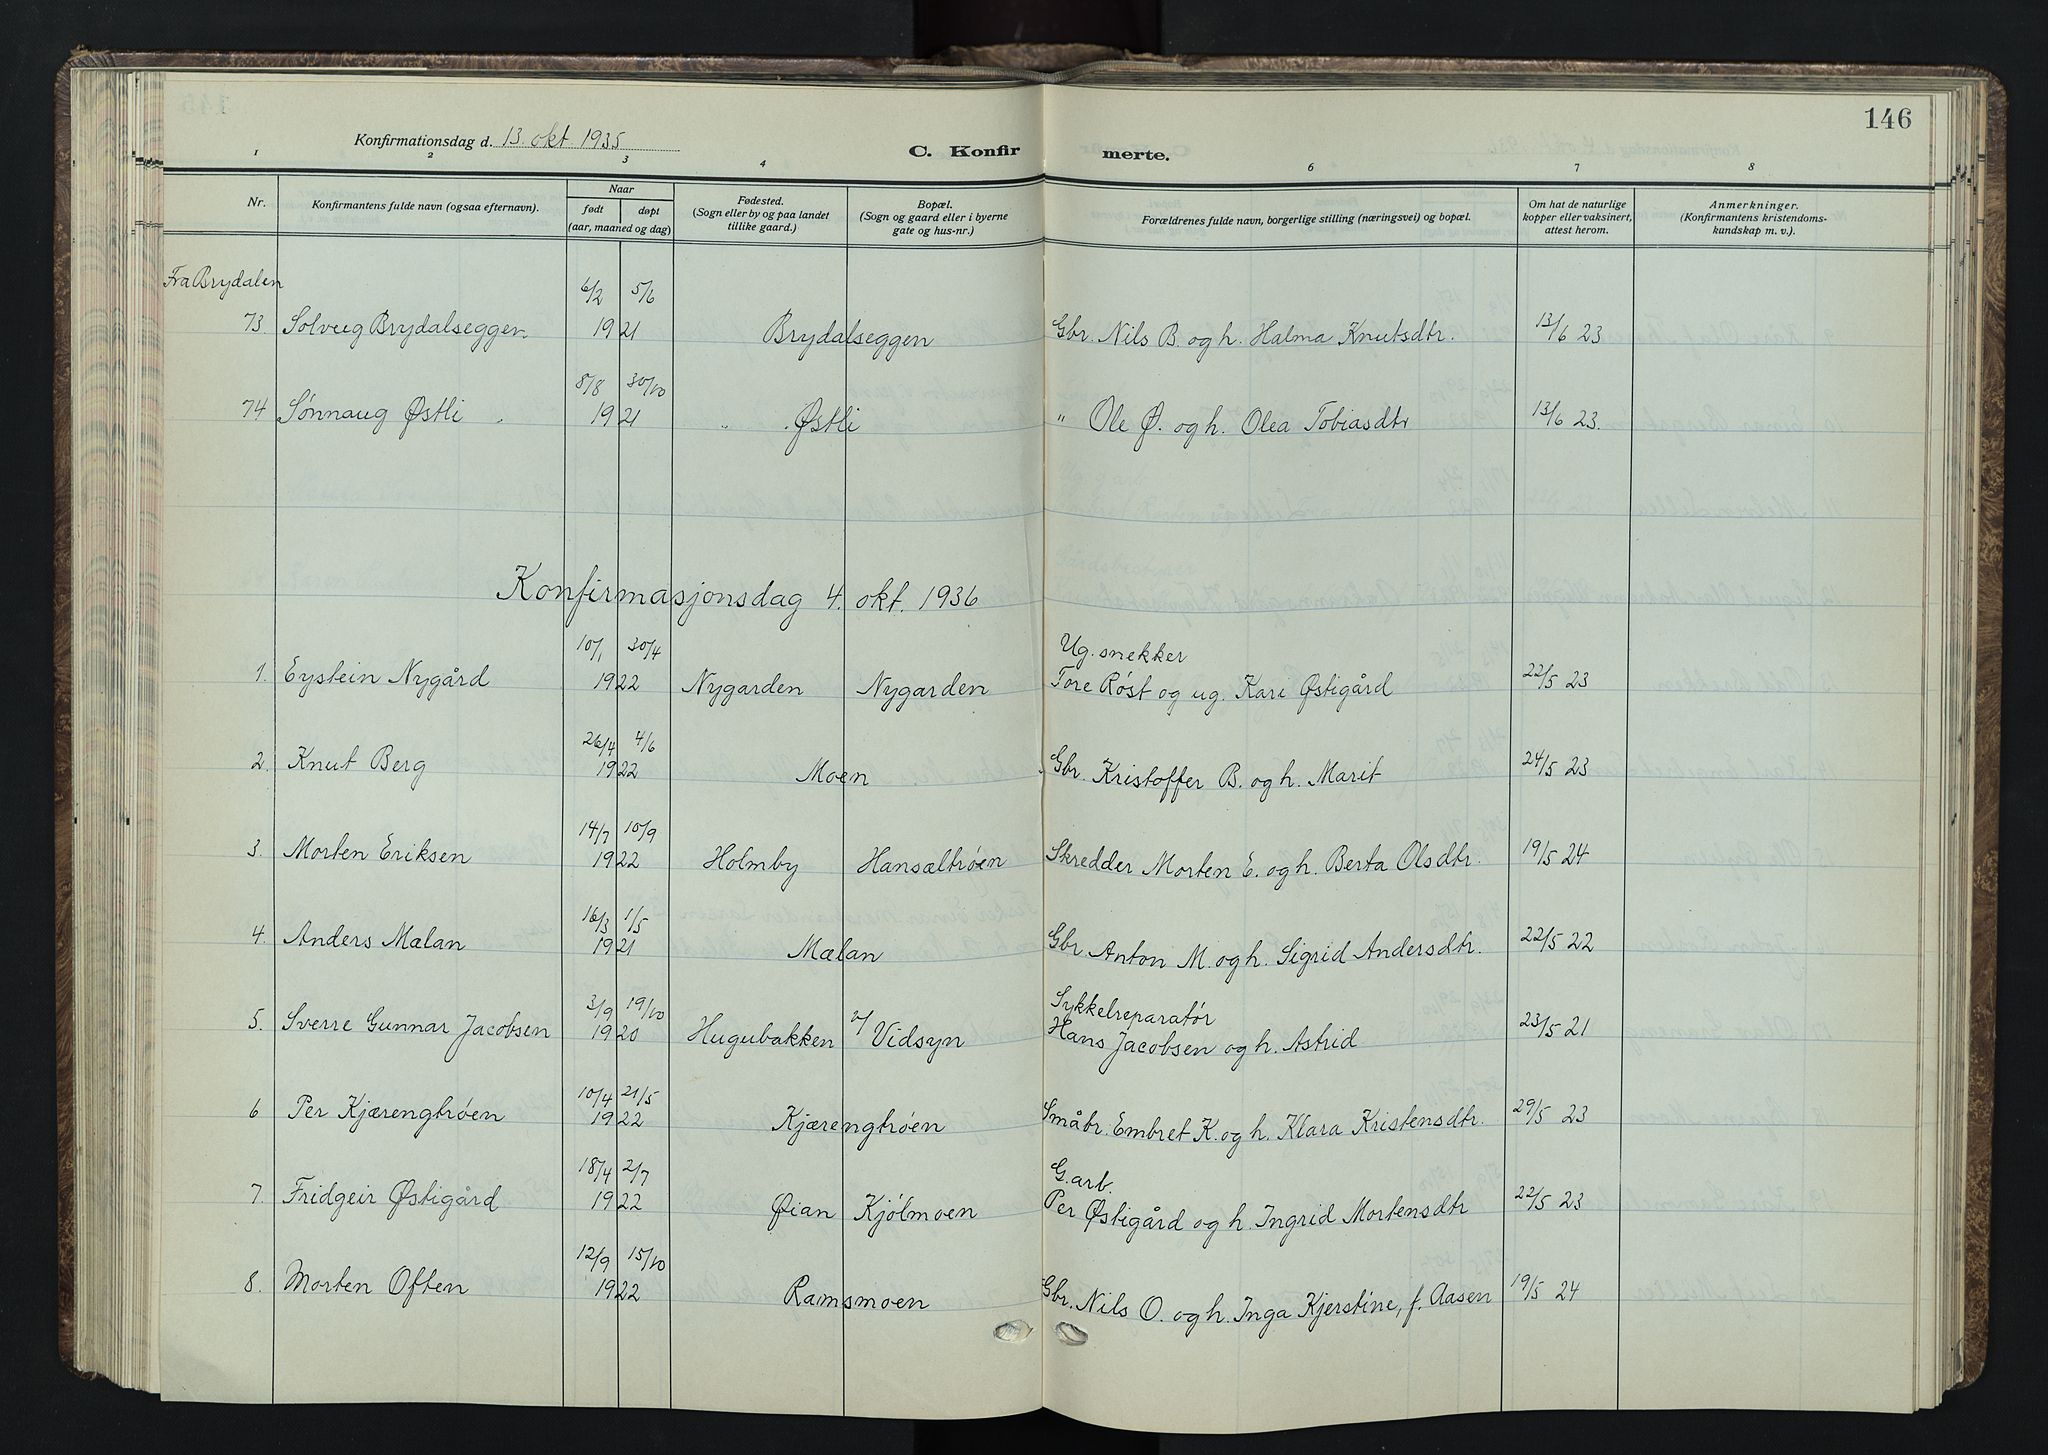 146
Konfirmationsdag d. 13. okt. 1935
C. Konfirmerte.
1 2 3 4 6 7 8
Nr.
Konfirmantens fulde navn (ogsaa efternavn).
Naar
født døpt
(aar, maaned og dag)
Fødested.
(Sogn eller by og paa landet
tillike gaard.)
Bopæl.
(Sogn og gaard eller i byerne
gate og hus-nr.)
Forældrenes fulde navn, borgerlige stilling (næringsvei) og bopæl.
Om hat de naturlige
kopper eller vaksinert,
attest herom.
Anmerkninger.
(Konfirmantens kristendoms-
kundskap m. v.).
Fra Brydalen
6/2 5/6
73. Solveig Brydalseggen. 1921 Brydalseggen Gbr. Nils B. og h. Halma Knutsdtr. 13/6 23
8/8 30/10
74 Sønnaug Østli 1921 " Østli " Ole Ø. og h. Olea Tobiasdtr 13/6 23.
Konfirmasjonsdag 4. okt. 1936
10/1 30/4 Ug. snekker
1. Eystein Nygård 1922 Nygarden Nygarden Tore Røst og ug. Kari Østigård 22/5 23
26/4 4/6
2. Knut Berg 1922 Moen Gbr. Kristoffer B. og h. Marit 24/5 23
14/7 10/9
3. Morten Eriksen 1922 Holmby Hansæltrøen Skredder Morten E. og h. Berta Olsdtr. 19/5 24
16/3 1/5
4. Anders Mælan 1921 Mælan Gbr Anton M. og h. Sigrid Andersdtr. 22/5 22
3/9 19/10 Sykkelreparatør
5. Sverre Gunnar Jacobsen 1920 Hugubakken v/ Vidsyn Hans Jacobsen og h. Astrid 23/5 21
10/4 21/5
6 Per Kjærengtrøen 1922 Kjærengtrøen Småbr. Embret K. og h. Klara Kristensdtr. 29/5 23
18/4 2/7 G. arb.
7. Fridgeir Østigård 1922 Øian Kjølmoen Per Østigård og h. Ingrid Mortensdtr 22/5 23
12/9 15/10
8. Morten Often 1922 Ramsmoen Gbr. Nils O. og h. Inga Kjerstine, f. Aasen 19/5 24